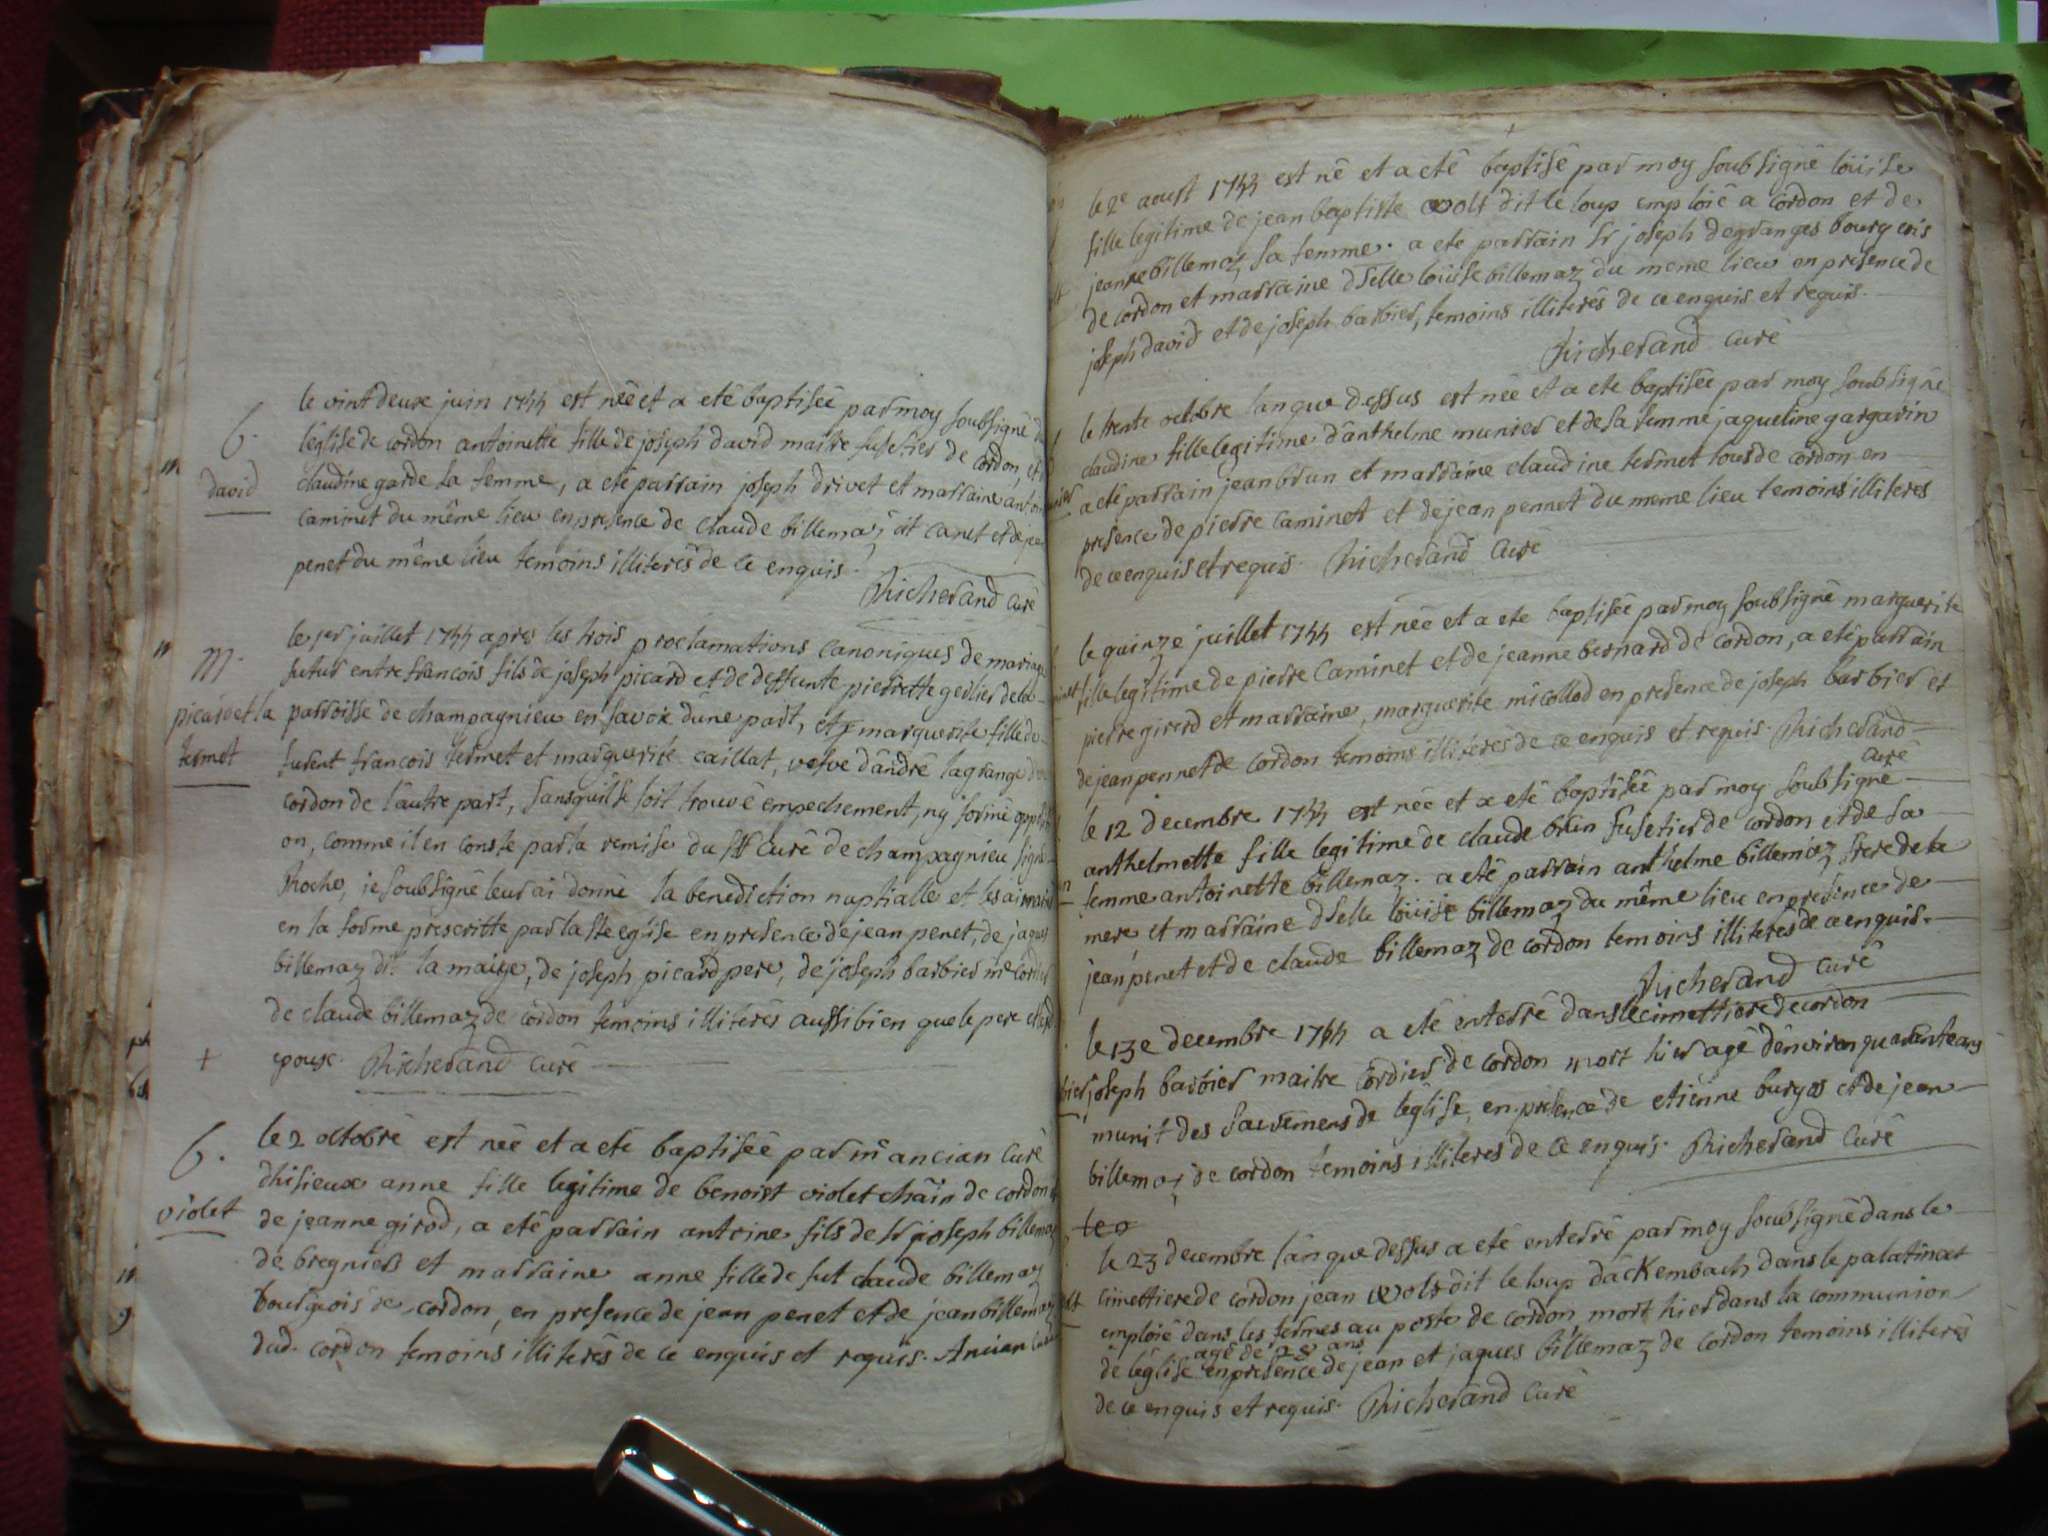 b.
david
le vint deux juin 1744 est née et a eté baptisée par moy soubsigné d
léglise de cordon antoinette fille de joseph david maitre fusetier de cordon, et
claudine garde sa femme, a eté parrain joseph drivet et marraine antoi
caminet du même lieu en presence de claude billemaz dit canet et de je
penet du même lieu temoins illiterés de ce enquis.
Richerand curé
M.
picard et la
termet
le 1er juillet 1744 apres les trois proclamations canoniques de mariage
futur entre francois fils de joseph picard et de deffunte pierrette geslier de la
parroisse de champagnieu en savoix dune part, et marguerite fille de
furent francois termet et marguerite caillat, vefve dandré lagrange
cordon de l'autre part, sans quil se soit trouvé empechement, ny formé opp
on, comme il en conste par la remise du Sr curé de champagnieu signé
Roche, je soubsigné leur ai donné la benediction nuptialle et les ai
en la forme prescritte par la ste eglise en presence de jean penet, de jaques
billemaz dt. la maize, de joseph picard pere, de joseph barbier me cordi
de claude billemaz de cordon temoins illiterés aussi bien que le pere et
epoux. Richerand curé
+
b.
violet
le 2 octobre est née et a eté baptisée par mr ancian curé
dhisieux anne fille legitime de benoist violet chain de cordon
de jeanne girod, a eté parrain antoine fils de sr joseph billemaz
de bregnier et marraine anne fille de fut claude billemaz
bourgeois de cordon, en presence de jean penet et de jean billemaz
dud. cordon temoins illiterés de ce enquis et requis. Ancian curé
le 2e aoust 1744 est né et a eté baptisé par moy soubsigné loüise
fille legitime de jean baptiste wolf dit le loup emploié a cordon et de
jeanne billemaz sa femme. a eté parrain sr joseph degranges bourgeois
de cordon et marraine dselle loüise billemaz du meme lieu en presence de
joseph david et de joseph barbier, temoins illiterés de ce enquis et requis.
Richerand curé
le trente octobre lan que dessus est née et a eté baptisée par moy soubsigné
claudine fille legitime d'anthelme munier et de sa femme jaqueline gargarin
a eté parrain jean brun et marraine claudine termet tous de cordon en
presence de pierre caminet et de jean pennet du meme lieu temoins illiteres
de ce enquis et requis. Richerand Curé
le quinze juillet 1744 est née et a eté baptisée par moy soubsigné marguerite
fille legitime de pierre caminet et de jeanne bernard de cordon, a eté parrain
pierre girerd et marraine, marguerite micolled en presence de joseph barbier et
de jean pennet de cordon temoins illiteres de ce enquis et requis. Richerand
curé
le 12 decembre 1744 est née et a eté baptisée par moy soubsigné
anthelmette fille legitime de claude brun fusetier de cordon et de sa
femme antoinette billemaz. a eté parrain anthelme billemaz frere de la
mere et marraine dselle loüise billemaz du même lieu en presence de
jean penet et de claude billemaz de cordon temoins illiteres de ce enquis.
Richerand curé
le 13e decembre 1744 a eté enterré dans le cimettiere de cordon
joseph barbier maitre cordier de cordon mort hier agé denviron quarante ans
munit des sacremens de léglise, en presence de etienne burgos et de jean
billemaz de cordon temoins illiteres de ce enquis. Richerand curé
le 23 decembre lan que dessus a eté enterré par moy soubsigné dans le
cimettiere de cordon jean wolf dit le loup dackembach dans le palatinat
emploié dans les fermes au poste de cordon mort hier dans la communion
agé de 28 ans
de léglise en presence de jean et jaques billemaz de cordon temoins illiterés
de ce enquis et requis. Richerand curé